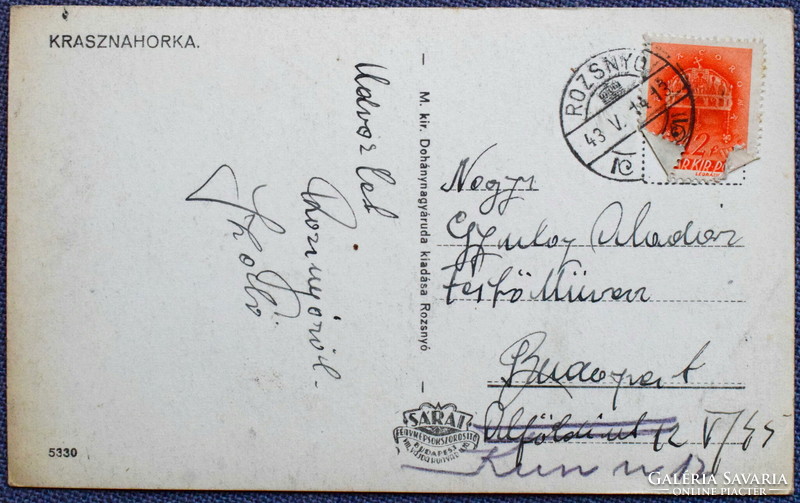 KRASZNAHORKA.
Üdvözlet
Rozsnyóról-
M. kir. Dohánynagyáruda kiadása Rozsnyó
ROZSNYÓ
43 V. 14 13
Nagys
Gyulay Aladár
festőművész
Budapest
Alföldi út 12 V/45
Kun u. 12
SARAI
FÉNYKÉPSOKSZOROSÍTÓ
BUDAPEST
5330
GALÉRIA SAVARIA
ONLINE PIACTÉR